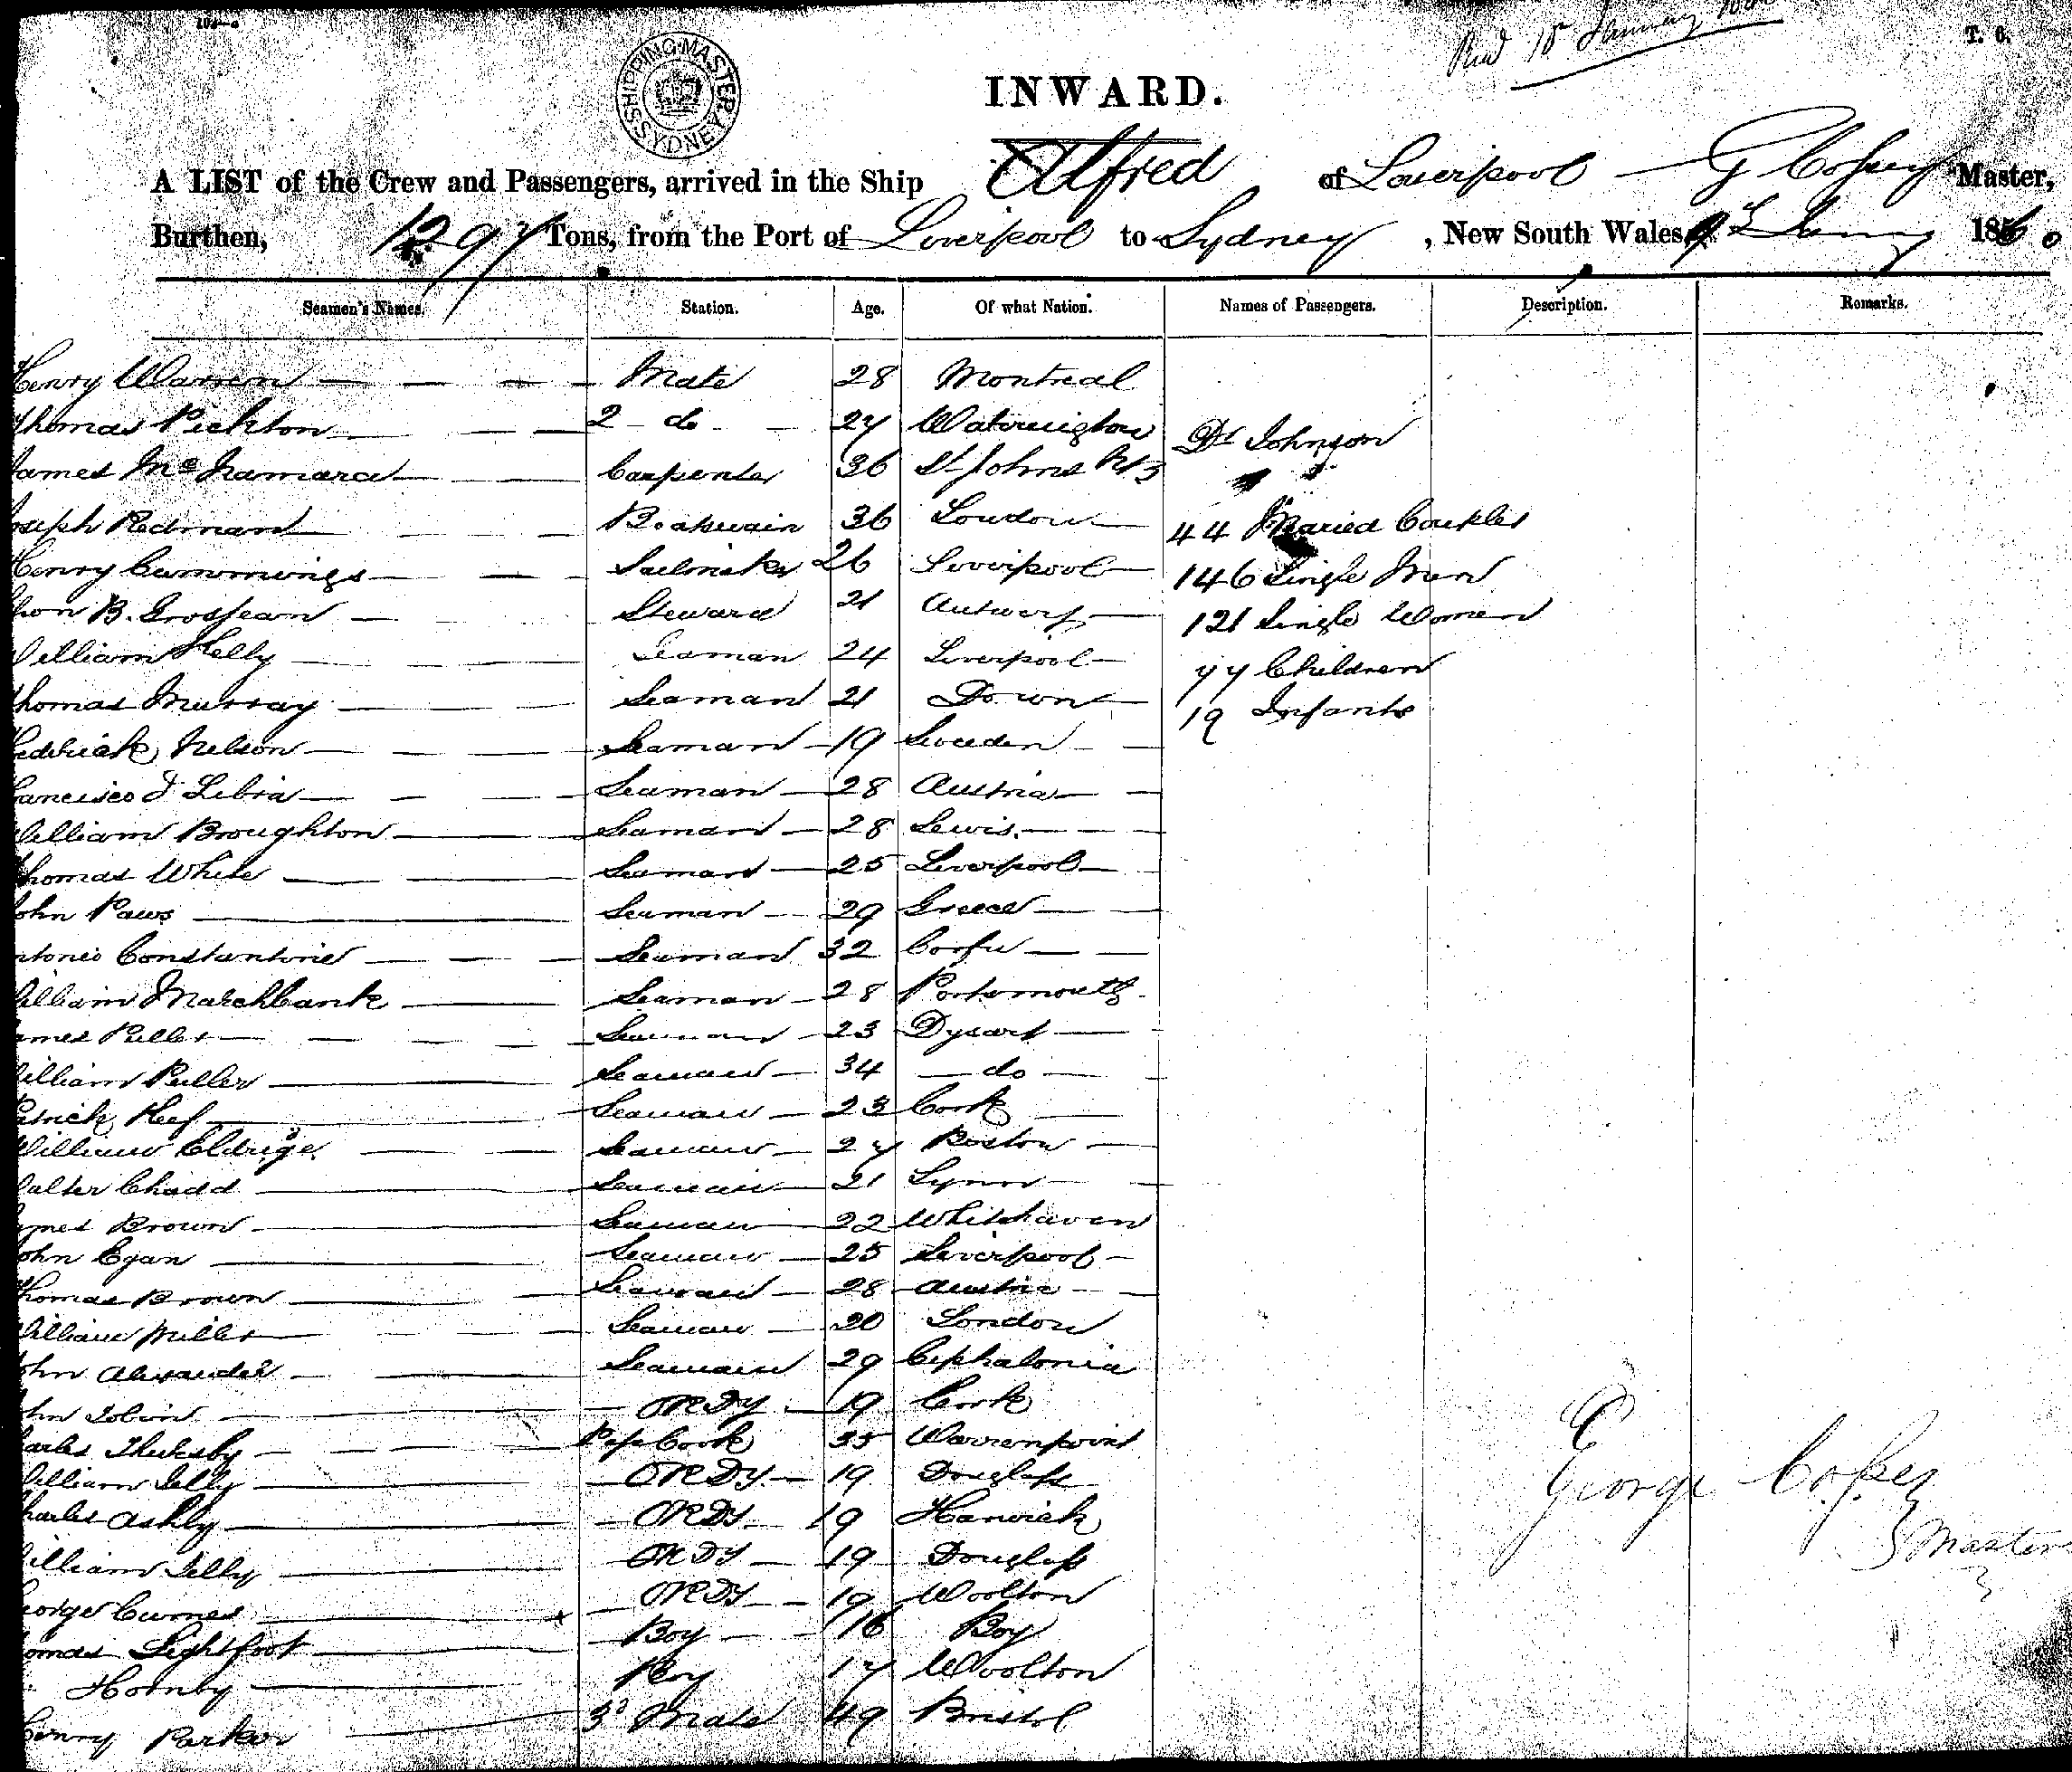 T. 6.
Recd 18 January
SHIPPING MASTER SYDNEY
INWARD.
A LIST of the Crew and Passengers, arrived in the Ship Alfred of Liverpool — G Cosey Master,
Burthen, 1297 Tons, from the Port of Liverpool to Sydney, New South Wales, 1860
Seamen's Names. Station. Age. Of what Nation. Names of Passengers. Description. Remarks.
Henry Warren Mate 28 Montreal
Thomas Pickton 2 do 27
James McNamara Carpenter 36 St Johns NB
Joseph Redmand Boatswain 36 London
Henry Cummings Sailmaker 26 Liverpool
B. Grosjean Steward 21 Antwerp
William Kelly Seaman 24 Liverpool
Thomas Murray Seaman 21 Down
Nelson Seaman 19 Sweden
Libria Seaman 28 Austria
William Broughton Seaman 28 Lewis
Thomas White Seaman 25 Liverpool
John Paws Seaman 29 Greece
Constantine Seaman 32 Corfu
William Marchbank Seaman 28 Portsmouth
James Puller Seaman 23 Dysart
William Puller Seaman 34 do
Patrick Keef Seaman 23 Cork
William Eldrige Seaman 27 Boston
Walter Chadd Seaman 21 Lynn
James Brown Seaman 22 Whitehaven
John Egan Seaman 25 Liverpool
Thomas Brown Seaman 28 Austria
William Miller Seaman 20 London
John Alexander Seaman 29 Cephalonia
John Tobin ORDY 19 Cork
Charles Cook 35 Warrenpoint
William Jelly ORDY 19 Douglass
Charles Ashly ORDY 19 Harwich
William Jelly ORDY 19 Douglass
George ORDY 19 Woolton
Thomas Lightfoot Boy 16 Boy
Hornby Boy 17 Woolton
Henry Parker 3d Mate 49 Bristol
Dr Johnson
44 Maried Couples
146 Single Men
121 Single Women
77 Children
19 Infants
George Cosey
Master